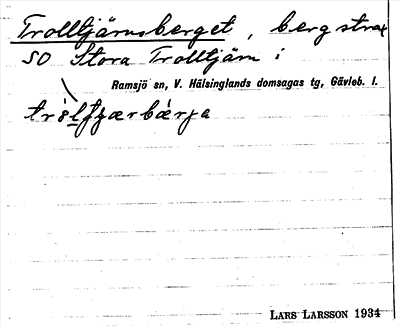 Trolltjärnsberget, berg strax
SO Stora Trolltjärn i
Ramsjö sn, V. Hälsinglands domsagas tg, Gävleb. l.
LARS LARSSON 1934